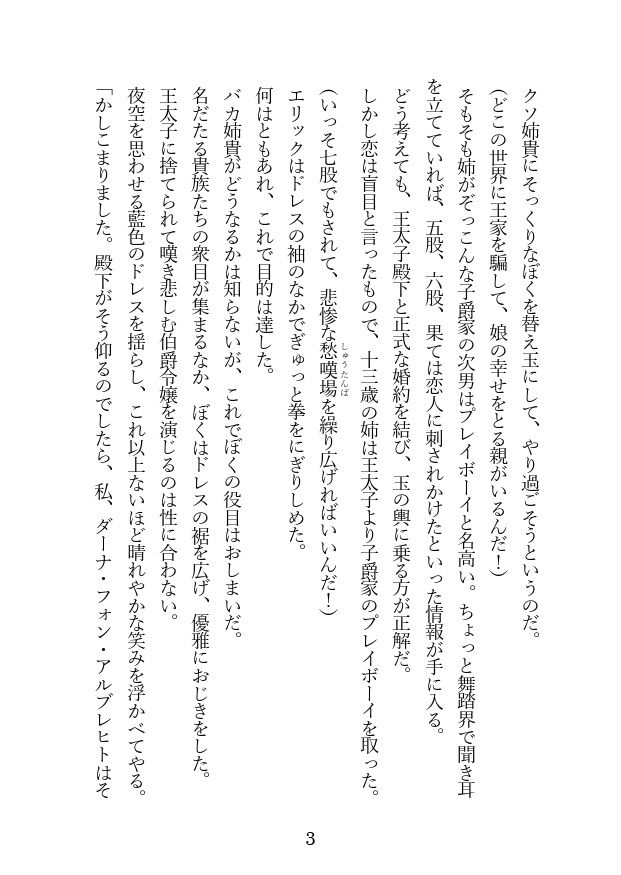 クソ姉貴にそっくりなぼくを替え玉にして、やり過ごそうというのだ。
(どこの世界に王家を騙して、娘の幸せをとる親がいるんだ!)
そもそも姉がぞっこんな子爵家の次男はプレイボーイと名高い。ちょっと舞踏界で聞き耳
を立てていれば、五股、六股、果ては恋人に刺されかけたといった情報が手に入る。
どう考えても、王太子殿下と正式な婚約を結び、玉の輿に乗る方が正解だ。
しかし恋は盲目と言ったもので、十三歳の姉は王太子より子爵家のプレイボーイを取った。
(いっそ七股でもされて、悲惨な愁嘆場を繰り広げればいいんだ!)
しゅうたんば
エリックはドレスの袖のなかでぎゅっと拳をにぎりしめた。
何はともあれ、これで目的は達した。
バカ姉貴がどうなるかは知らないが、これでぼくの役目はおしまいだ。
名だたる貴族たちの衆目が集まるなか、ぼくはドレスの裾を広げ、優雅におじきをした。
王太子に捨てられて嘆き悲しむ伯爵令嬢を演じるのは性に合わない。
夜空を思わせる藍色のドレスを揺らし、これ以上ないほど晴れやかな笑みを浮かべてやる。
「かしこまりました。殿下がそう仰るのでしたら、私、ダーナ・フォン・アルブレヒトはそ
3